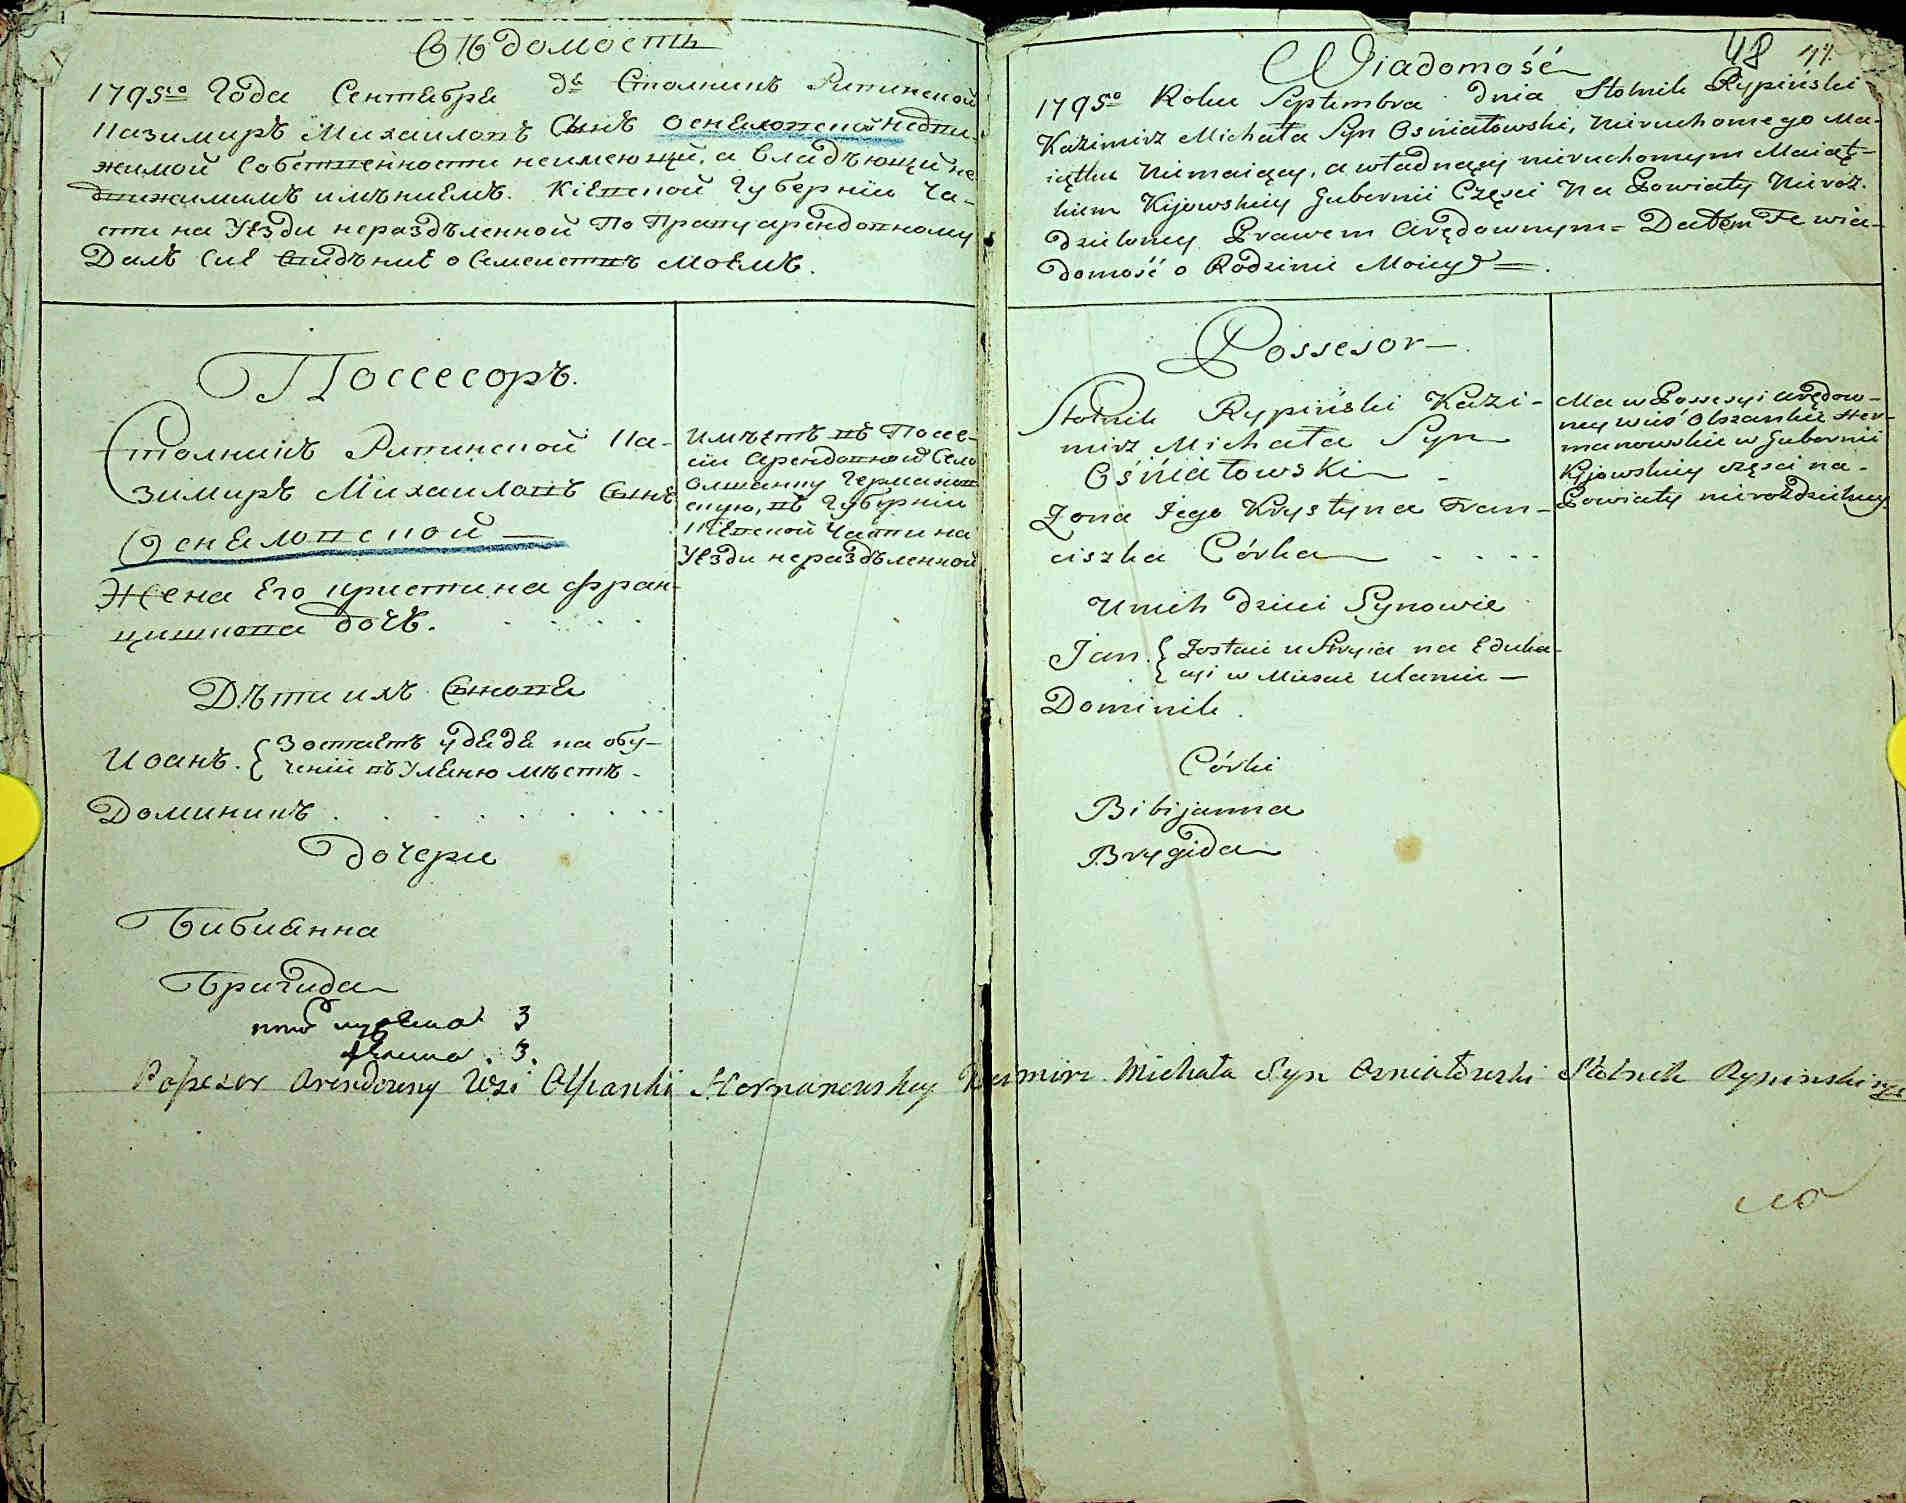 Вѣдомость
1795го Года Сентября дс Столникъ Рипинской
Казимиръ Михайловъ Сынъ Оснѧловской недви-
жимой Собственности неимеющи, а владѣющи не
движимимъ имѣниемъ. Кіевской Губерніи Ча-
сти на Уезди нераздѣленной По Праву арендовному
Далъ Сие Видѣние о Семействѣ моемъ.
Поссесоръ.
Столникъ Рипинской Ка-
зимиръ Михаиловъ Сынъ
Оснѧловской
Жена Его Кристина Фран-
цишкова дочь.
Дѣти ихъ Синовя
Иоанъ. { Зостаетъ у дядя на обу-
ченіи въ Уляню мѣстѣ
Доминикъ
Дочери
Бибиянна
Бригида
3
3.
Имѣетъ въ Поссе-
сіи Арендовной Село
Олшанку Германов
скую, въ Губерніи
Кіевской Части на
Уезди нераздѣленной
48
Wiadomość
1795o Roku Septembra dnia Stolnik Rypiński
Kazimirz Michała Syn Ośniałowski, Nieruchomego Ma-
iątku Niemaiący, a władnący nieruchomym Maiąt-
kiem Kijowskiey Gubernii Części Na Powiaty Nieroz-
dzieloney Prawem Arędownym= Dałem Te wia-
domość o Rodzinie Moiey
Possesor
Stolnik Rypiński Kazi-
mirz Michała Syn
Ośniałowski
Żona Jego Krystyna Fran-
ciszka Córka
U nich dzieci Synowie
Jan { Zostaie u Stryia na Eduka-
cyi w Mieście Ulaniu
Dominik
Córki
Bibijanna
Brygida
Ma w Possesyi Arędow-
ney wieś Olszankie Her-
manowskie w Gubernii
Kijowskiey części na
Powiaty nierozdzielney
Possesor Arendowny Wsi Olszanki Hermanowskiey Kazimirz Michała Syn Osniałowski Stolnik Rypinski